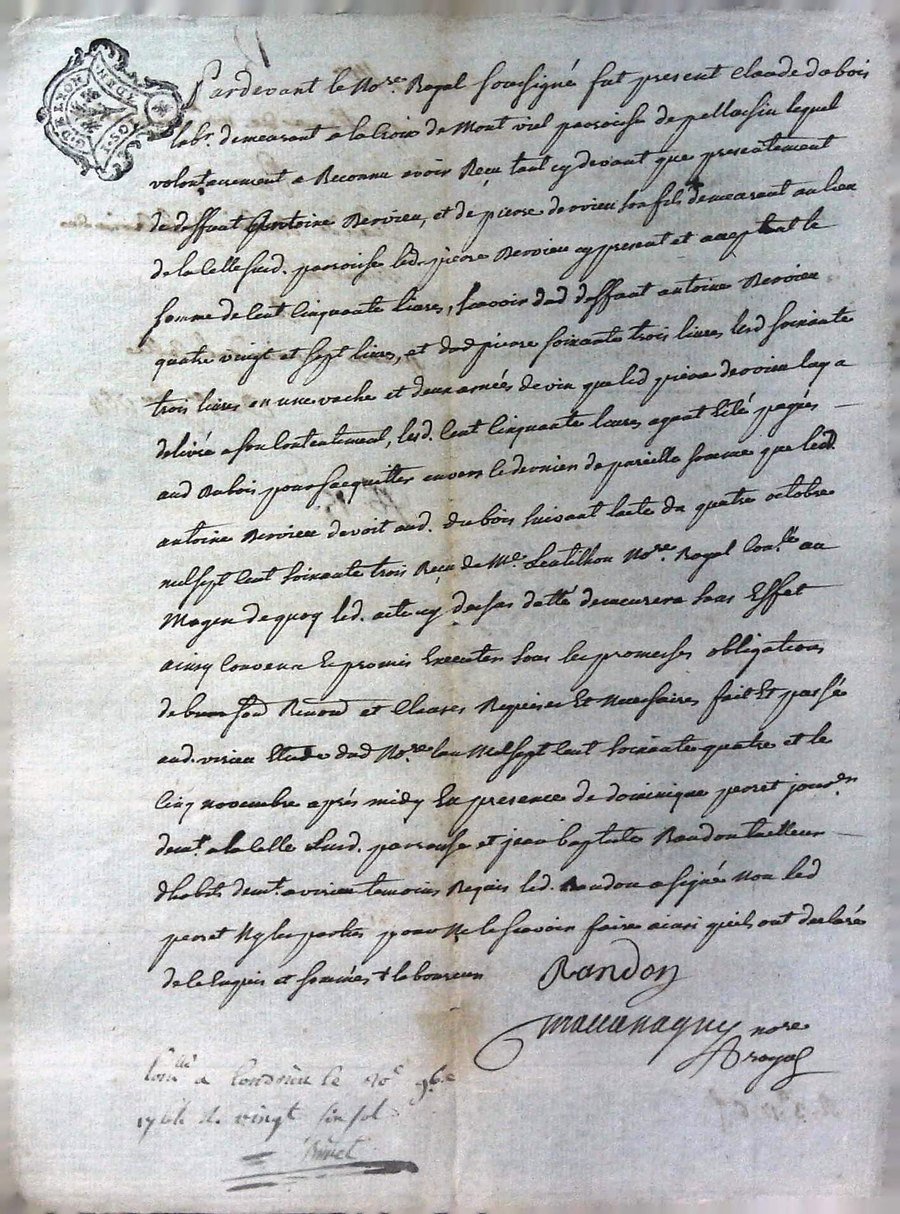 GEN. DE LYON
UN SOL
Pardevant le No.re Royal soussigné fut present Claude dubois
labr. demeurant a la Croix de Mont viel parroisse de pellussin lequel
volontairement a Reconnu avoir Reçu tant cy devant que presentement
de deffunt Antoine Dervieu, et de pierre dervieu son fils demeurant au lieu
de la Celle susd. parroisse led. pierre Dervieu cy present et acceptant le
somme de Cent Cinquante livres, scavoir dud deffunt antoine Dervieu
quatre vingt et sept livres, et dud pierre soixante trois livres lesd soixante
trois livres en une vache et deux anneés de vin que led pierre dervieu luy a
delivré a son Contentement, lesd. Cent Cinquante livres ayant Eté payés
aud Dubois pour s'acquitter envers le dernier de pareille somme que led.
antoine Dervieu devoit aud. dubois suivant lacte du quatre octobre
mil sept Cent soixante trois Reçu de Me. No.re Royal Con.lle au
Moyen de quoy led. acte cy dessus datté demeurera sans Effet
ainsy Convenu Et promis Executer sous les promesses obligations
de biens Renond et Clauses Requises Et Necessaires fait Et passé
aud. virieu Etude dud No.re lan Mil sept Cent soixante quatre et le
Cinq novembre aprés midy En presence de dominique peret jour.er
demt. a la Celle susd. parroisse et jean baptiste Randon tailleur
dhabits demt. a virieu temoins Requis led. Randon a signé Non led
peret Ny les parties pour Ne le scavoir faire ainsi quils ont declaré
de ce Enquis et sommés + laboureur
Randon
nore
royal
Con.lle a Condrieu le 10e 9bre
1764 R. vingt six sol